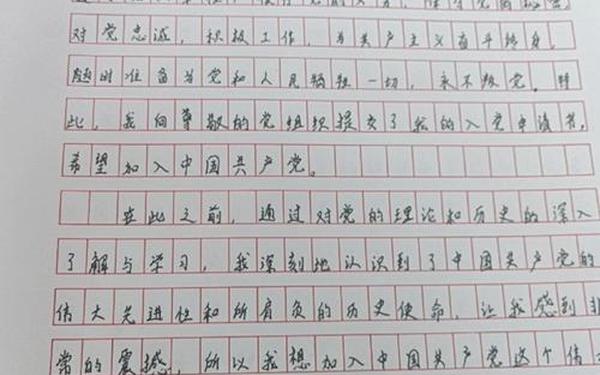 对党忠诚，积极工作，为共产主义奋斗终身，
随时准备为党和人民牺牲一切，永不叛党。
此，我向尊敬的党组织提交了我的入党申请书，
希望加入中国共产党。
在此之前，通过对党的理论和历史的深入
了解与学习，我深刻地认识到了中国共产党的
伟大先进性和所肩负的历史使命，让我感到非
常的震撼，所以我想加入中国共产党这个伟大